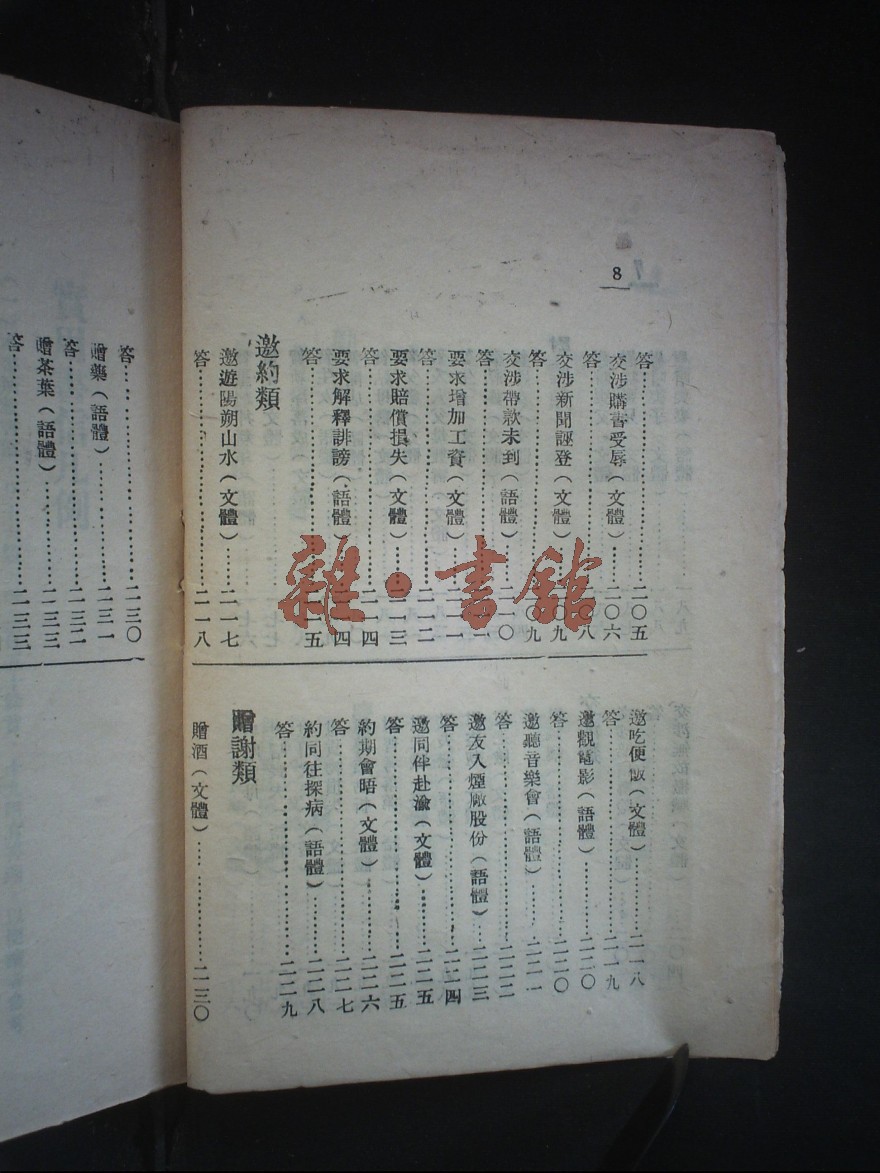 8
答……二〇五
交涉購書受辱（文體）……二〇六
答……二〇八
交涉新聞誣登（文體）……二〇九
答……二〇九
交涉帶款未到（語體）……二一〇
答……二一一
要求增加工資（文體）……二一一
答……二一二
要求賠償損失（文體）……二一三
答……二一四
要求解釋誹謗（語體）……二一四
答……二一五
邀約類
邀遊陽朔山水（文體）……二一七
答……二一八
邀吃便飯（文體）……二一八
答……二一九
邀觀電影（語體）……二二〇
答……二二〇
邀聽音樂會（語體）……二二一
答……二二二
邀友入煙廠股份（語體）……二二三
答……二二四
邀同伴赴渝（文體）……二二五
答……二二五
約期會晤（文體）……二二六
答……二二七
約同往探病（語體）……二二八
答……二二九
贈謝類
贈酒（文體）……二三〇
答……二三〇
贈藥（語體）……二三一
答……二三二
贈茶葉（語體）……二三三
答……二三三
雜·書館